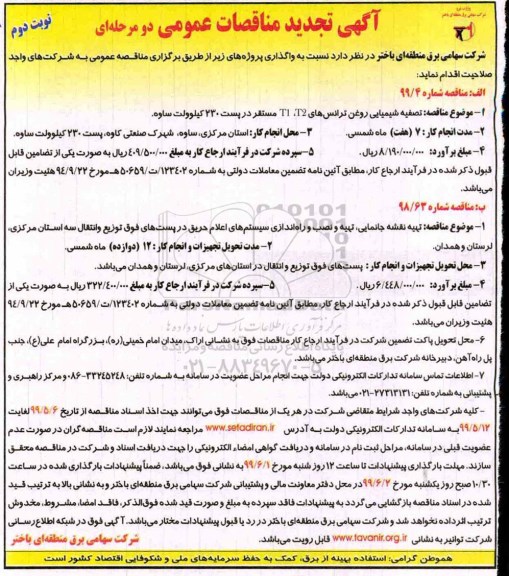 نوبت دوم
آگهی تجدید مناقصات عمومی دو مرحله‌ای
شرکت سهامی برق منطقه‌ای باختر در نظر دارد نسبت به واگذاری پروژه‌های زیر از طریق برگزاری مناقصه عمومی به شرکت‌های واجد
صلاحیت اقدام نماید:
الف: مناقصه شماره ۹۹/۴
۱- موضوع مناقصه: تصفیه شیمیایی روغن ترانس‌های T1 ،T2 مستقر در پست ۲۳۰ کیلوولت ساوه.
۲- مدت انجام کار: ۷ (هفت) ماه شمسی. ۳- محل انجام کار: استان مرکزی، ساوه، شهرک صنعتی کاوه، پست ۲۳۰ کیلوولت ساوه.
۴- مبلغ برآورد: ۸/۱۹۰/۰۰۰/۰۰۰ ریال. ۵- سپرده شرکت در فرآیند ارجاع کار به مبلغ ۴۰۹/۵۰۰/۰۰۰ ریال به صورت یکی از تضامین قابل
قبول ذکر شده در فرآیند ارجاع کار، مطابق آئین نامه تضمین معاملات دولتی به شماره ۱۲۳۴۰۲/ت۵۰۶۵۹هـ مورخ ۹۴/۹/۲۲ هئیت وزیران
می‌باشد.
ب: مناقصه شماره ۹۸/۶۳
۱- موضوع مناقصه: تهیه نقشه جانمایی، تهیه و نصب و راه‌اندازی سیستم‌های اعلام حریق در پست‌های فوق توزیع وانتقال سه استان مرکزی،
لرستان و همدان. ۲- مدت تحویل تجهیزات و انجام کار: ۱۲ (دوازده) ماه شمسی.
۳- محل تحویل تجهیزات و انجام کار: پست‌های فوق توزیع وانتقال در استان‌های مرکزی، لرستان و همدان می‌باشد.
۴- مبلغ برآورد: ۶/۴۴۸/۰۰۰/۰۰۰ ریال. ۵- سپرده شرکت در فرآیند ارجاع کار به مبلغ ۳۲۲/۴۰۰/۰۰۰ ریال به صورت یکی از
تضامین قابل قبول ذکر شده در فرآیند ارجاع کار، مطابق آئین نامه تضمین معاملات دولتی به شماره ۱۲۳۴۰۲/ت۵۰۶۵۹هـ مورخ ۹۴/۹/۲۲
هئیت وزیران می‌باشد.
۶- محل تحویل پاکت تضمین شرکت در فرآیند ارجاع کار مناقصات فوق به نشانی اراک، میدان امام خمینی(ره)، بزرگراه امام علی(ع)، جنب
پل راه‌آهن، دبیرخانه شرکت برق منطقه‌ای باختر می‌باشد.
۷- اطلاعات تماس سامانه تدارکات الکترونیکی دولت جهت انجام مراحل عضویت در سامانه به شماره تلفن: ۳۳۲۴۵۲۴۸-۰۸۶ و مرکز راهبری و
پشتیبانی به شماره تلفن: ۲۷۳۱۳۱۳۱-۰۲۱ می‌باشد.
- کلیه شرکت‌های واجد شرایط متقاضی شرکت در هر یک از مناقصات فوق می‌توانند جهت اخذ اسناد مناقصه از تاریخ ۹۹/۵/۶ لغایت
۹۹/۵/۱۲ به سامانه تدارکات الکترونیکی دولت به آدرس www.setadiran.ir مراجعه نمایند لازم است مناقصه گران در صورت عدم
عضویت قبلی در سامانه، مراحل ثبت نام در سامانه و دریافت گواهی امضاء الکترونیکی را جهت دریافت اسناد و شرکت در مناقصه محقق
سازند. مهلت بارگذاری پیشنهادات تا ساعت ۱۲ روز شنبه مورخ ۹۹/۶/۱ به نشانی فوق می‌باشد، ضمناً پیشنهادات بارگذاری شده در ساعت
۱۰/۳۰ صبح روز یکشنبه مورخ ۹۹/۶/۲ در محل دفتر معاونت مالی و پشتیبانی شرکت سهامی برق منطقه‌ای باختر و به نشانی بالا به ترتیب قید
شده در اسناد مناقصه بازگشایی می‌گردد به پیشنهادات فاقد سپرده به مبلغ و صورت قید شده فوق‌الذکر، فاقد امضا، مشروط، مخدوش
ترتیب اثر داده نخواهد شد و شرکت سهامی برق منطقه‌ای باختر در رد یا قبول پیشنهادات مختار می‌باشد. آگهی فوق در شبکه اطلاع رسانی
شرکت توانیر به نشانی www.tavanir.org.ir قابل رویت می‌باشد. شرکت سهامی برق منطقه‌ای باختر
هموطن گرامی: استفاده بهینه از برق، کمک به حفظ سرمایه‌های ملی و شکوفایی اقتصاد کشور است
۰۲۱-۸۸۳۴۹۶۷۰-۵